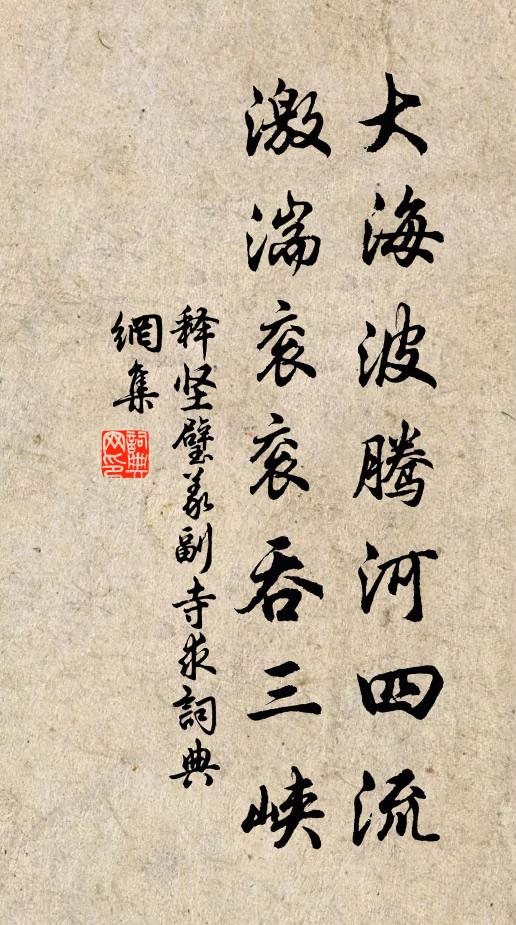 大海波腾河四流
激湍衮衮吞三峡
释坚璧义副寺求詞典
網集
詞典
网印